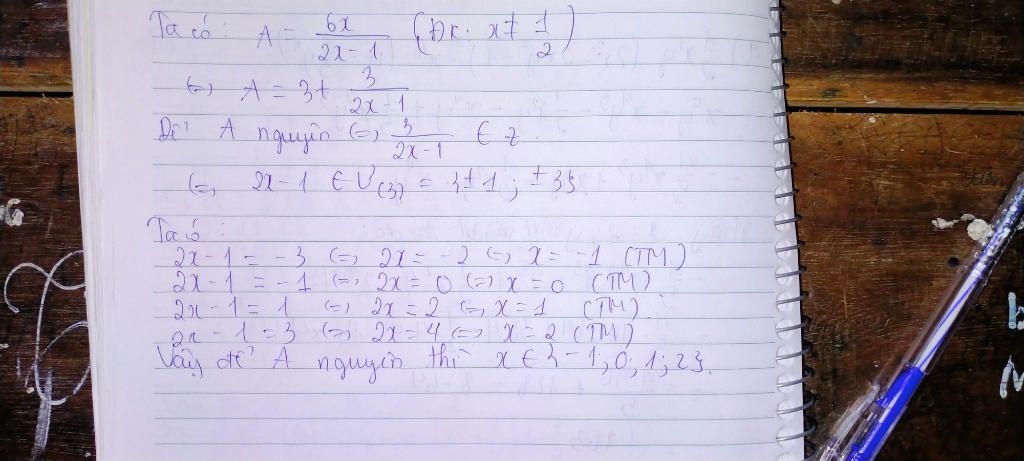 Ta có : A = 6x / 2x - 1 (ĐK: x ≠ 1/2)
(=) A = 3 + 3 / 2x - 1
Để A nguyên (=) 3 / 2x - 1 ∈ Z.
(=) 2x - 1 ∈ Ư(3) = {±1 ; ±3}
Ta có :
2x - 1 = -3 (=) 2x = -2 (=) x = -1 (TM)
2x - 1 = -1 (=) 2x = 0 (=) x = 0 (TM)
2x - 1 = 1 (=) 2x = 2 (=) x = 1 (TM).
2x - 1 = 3 (=) 2x = 4 (=) x = 2 (TM)
Vậy để A nguyên thì x ∈ {-1; 0; 1; 2}.